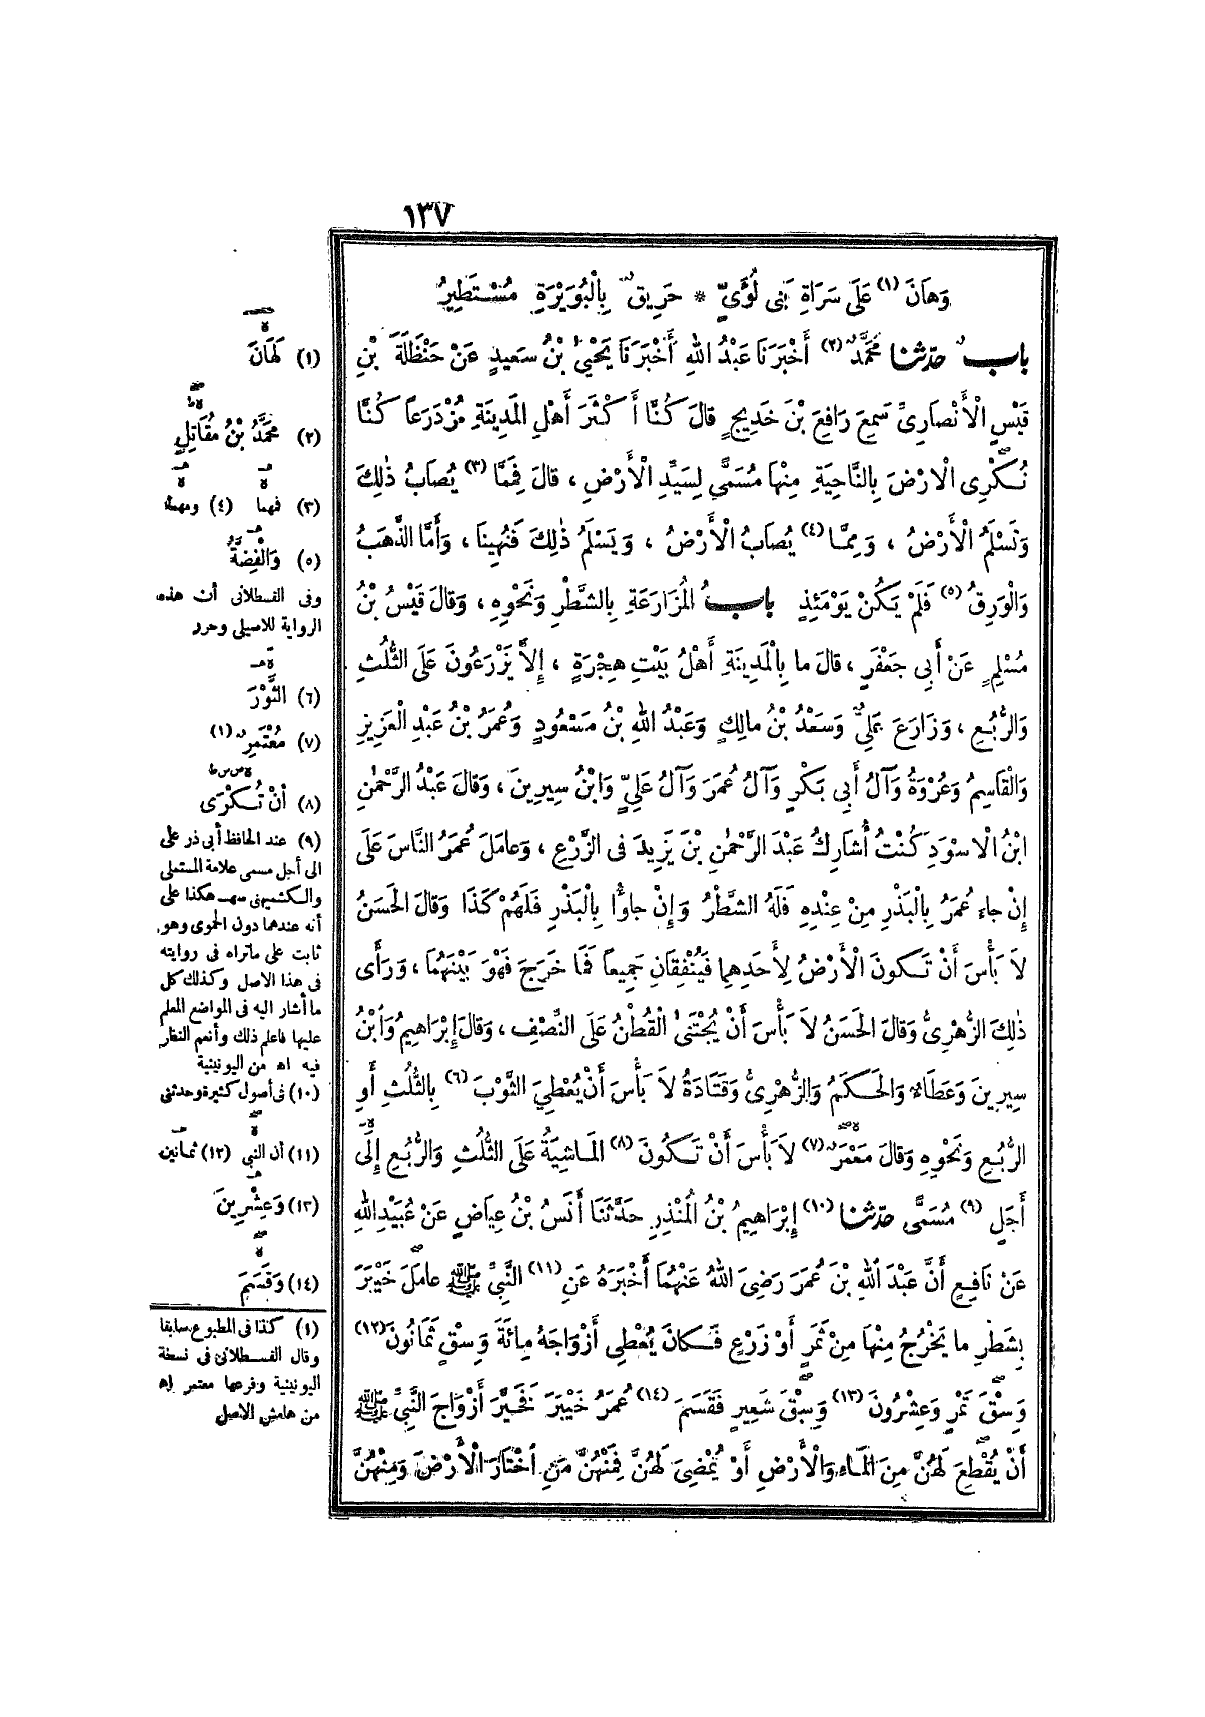 ١٣٧
وَهَانَ (١) عَلَى سَرَاةِ بَنِى لُؤَىٍّ * حَرِيقٌ بِالْبُوَيْرَةِ مُسْتَطِيرُ
بابٌ حدثنا مُحَمَّدٌ (٢) أَخْبَرَنَا عَبْدُ اللهِ أَخْبَرَنَا يَحْيَى بْنُ سَعِيدٍ عَنْ حَنْظَلَةَ بْنِ
قَيْسٍ الْأَنْصَارِىِّ سَمِعَ رَافِعَ بْنَ خَدِيجٍ قالَ كُنَّا أَكْثَرَ أَهْلِ الْمَدِينَةِ مُزْدَرَعاً كُنَّا
نُكْرِى الْارْضَ بِالنَّاحِيَةِ مِنْهَا مُسَمًّى لِسَيِّدِ الْأَرْضِ ، قالَ فَمِمَّا (٣) يُصَابُ ذٰلِكَ
وَتَسْلَمُ الْأَرْضُ ، وَمِمَّا (٤) يُصَابُ الْأَرْضُ ، وَيَسْلَمُ ذٰلِكَ فَنُهِينَا ، وَأَمَّا الذَّهَبُ
وَالْوَرِقُ (٥) فَلَمْ يَكُنْ يَوْمَئِذٍ بابُ الْمُزَارَعَةِ بِالشَّطْرِ وَنَحْوِهِ ، وَقالَ قَيْسُ بْنُ
مُسْلِمٍ عَنْ أَبِى جَعْفَرٍ ، قالَ ما بِالْمَدِينَةِ أَهْلُ بَيْتِ هِجْرَةٍ ، إِلاَّ يَزْرَعُونَ عَلَى الثُّلُثِ
وَالرُّبُعِ ، وَزَارَعَ عَلِىٌّ وَسَعْدُ بْنُ مالِكٍ وَعَبْدُ اللهِ بْنُ مَسْعُودٍ وَعُمَرُ بْنُ عَبْدِ الْعَزِيزِ
وَالْقَاسِمُ وَعُرْوَةُ وَآلُ أَبِى بَكْرٍ وَآلُ عُمَرَ وَآلُ عَلِىٍّ وَابْنُ سِيرِينَ ، وَقالَ عَبْدُ الرَّحْمٰنِ
ابْنُ الْاسْوَدِ كُنْتُ أُشَارِكُ عَبْدَ الرَّحْمٰنِ بْنَ يَزِيدَ فى الزَّرْعِ ، وَعامَلَ عُمَرُ النَّاسَ عَلَى
إِنْ جاءَ عُمَرُ بِالْبَذْرِ مِنْ عِنْدِهِ فَلَهُ الشَّطْرُ وَإِنْ جاؤُا بِالْبَذْرِ فَلَهُمْ كَذَا وَقالَ الْحَسَنُ
لاَ بَأْسَ أَنْ تَكونَ الْأَرْضُ لِأَحَدِهِما فَيُنْفِقَانِ جَمِيعاً فَمَا خَرَجَ فَهْوَ بَيْنَهُمَا ، وَرَأَى
ذٰلِكَ الزُّهْرِىُّ وَقالَ الْحَسَنُ لاَ بَأْسَ أَنْ يُجْتَنَى الْقُطْنُ عَلَى النِّصْفِ ، وَقالَ إِبْرَاهِيمُ وَابْنُ
سِيرِينَ وَعَطَاءٌ وَالْحَكَمُ وَالزُّهْرِىُّ وَقَتَادَةُ لاَ بَأْسَ أَنْ يُعْطِىَ الثَّوْبَ (٦) بِالثُّلُثِ أَوِ
الرُّبُعِ وَنَحْوِهِ وَقالَ مَعْمَرٌ (٧) لاَ بَأْسَ أَنْ تَكُونَ (٨) الْمَاشِيَةُ عَلَى الثُّلُثِ وَالرُّبُعِ إِلَى
أَجَلٍ (٩) مُسَمًّى حدثنا (١٠) إِبْرَاهِيمُ بْنُ الْمُنْذِرِ حَدَّثَنَا أَنَسُ بْنُ عِيَاضٍ عَنْ عُبَيْدِ اللهِ
عَنْ نَافِعٍ أَنَّ عَبْدَ اللهِ بْنَ عُمَرَ رَضِىَ اللهُ عَنْهُمَا أَخْبَرَهُ عَنِ (١١) النَّبِىِّ ﷺ عامَلَ خَيْبَرَ
بِشَطْرِ ما يَخْرُجُ مِنْهَا مِنْ ثَمَرٍ أَوْ زَرْعٍ فَكانَ يُعْطِى أَزْوَاجَهُ مِائَةَ وَسْقٍ ثَمَانُونَ (١٢)
وَسْقَ تَمْرٍ وَعِشْرُونَ (١٣) وَسْقَ شَعِيرٍ فَقَسَمَ (١٤) عُمَرُ خَيْبَرَ نَخَيَّرَ أَزْوَاجَ النَّبِىِّ ﷺ
أَنْ يُقْطِعَ لَهُنَّ مِنَ الْمَاءِ وَالْأَرْضِ أَوْ يُمْضِىَ لَهُنَّ فَمِنْهُنَّ مَنِ اخْتَارَ الْأَرْضَ وَمِنْهُنَّ
(١) لَهَانَ
(٢) مُحَمَّدُ بْنُ مُقَاتِلٍ
(٣) فَهما (٤) ومهما
(٥) وَالْفِضَّةُ
وفى القسطلانى أن هذه
الرواية للاصيلى وحرر
(٦) الثَّوْرَ
(٧) مُعْتَمِرٌ (١)
(٨) أَنْ تُكْرَى
(٩) عند الحافظ أبى ذر على
الى أجل مسمى علامة المستملى
والكشميهنى هكذا على
أنه عندهما دون الحموى وهو
ثابت على ماتراه فى روايته
فى هذا الاصل وكذلك كل
ما أشار اليه فى المواضع المعلم
عليها فاعلم ذلك وأنعم النظر
فيه اه من اليونينية
(١٠) فى أصول كثيرة وحدثنى
(١١) أن النبى (١٢) ثمانين
(١٣) وَعِشْرِينَ
(١٤) وَقَسَمَ
(١) كذا فى المطبوع سابقا
وقال القسطلانى فى نسخة
اليونينية وفرعها معتمر اه
من هامش الاصل